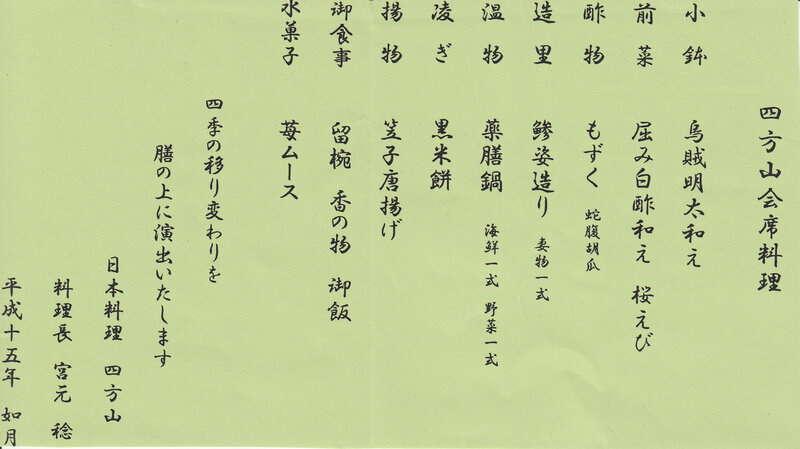 四方山会席料理
小鉢 烏賊明太和え
前菜 屈み白酢和え 桜えび
酢物 もずく 蛇腹胡瓜
造里 鯵姿造り 妻物一式
温物 薬膳鍋 海鮮一式 野菜一式
凌ぎ 黒米餅
揚物 笠子唐揚げ
御食事 留椀 香の物 御飯
水菓子 苺ムース
四季の移り変わりを
膳の上に演出いたします
日本料理 四方山
料理長 宮元 稔
平成十五年 如月